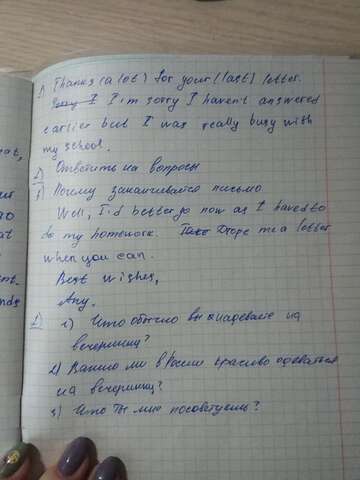 1) Thanks (a lot) for your (last) letter.
Sorry I I'm sorry I haven't answered
earlier but I was really busy with
my school.
2) Ответить на вопросы
3) Почему заканчивается письмо
Well, I'd better go now as I have to
do my homework. Take Drope me a letter
when you can.
Best wishes,
Any.
2) 1) Что обычно вы надеваете на
вечеринку?
2) Важно ли в России красиво одеваться
на вечеринку?
3) Что ты мне посоветуешь?